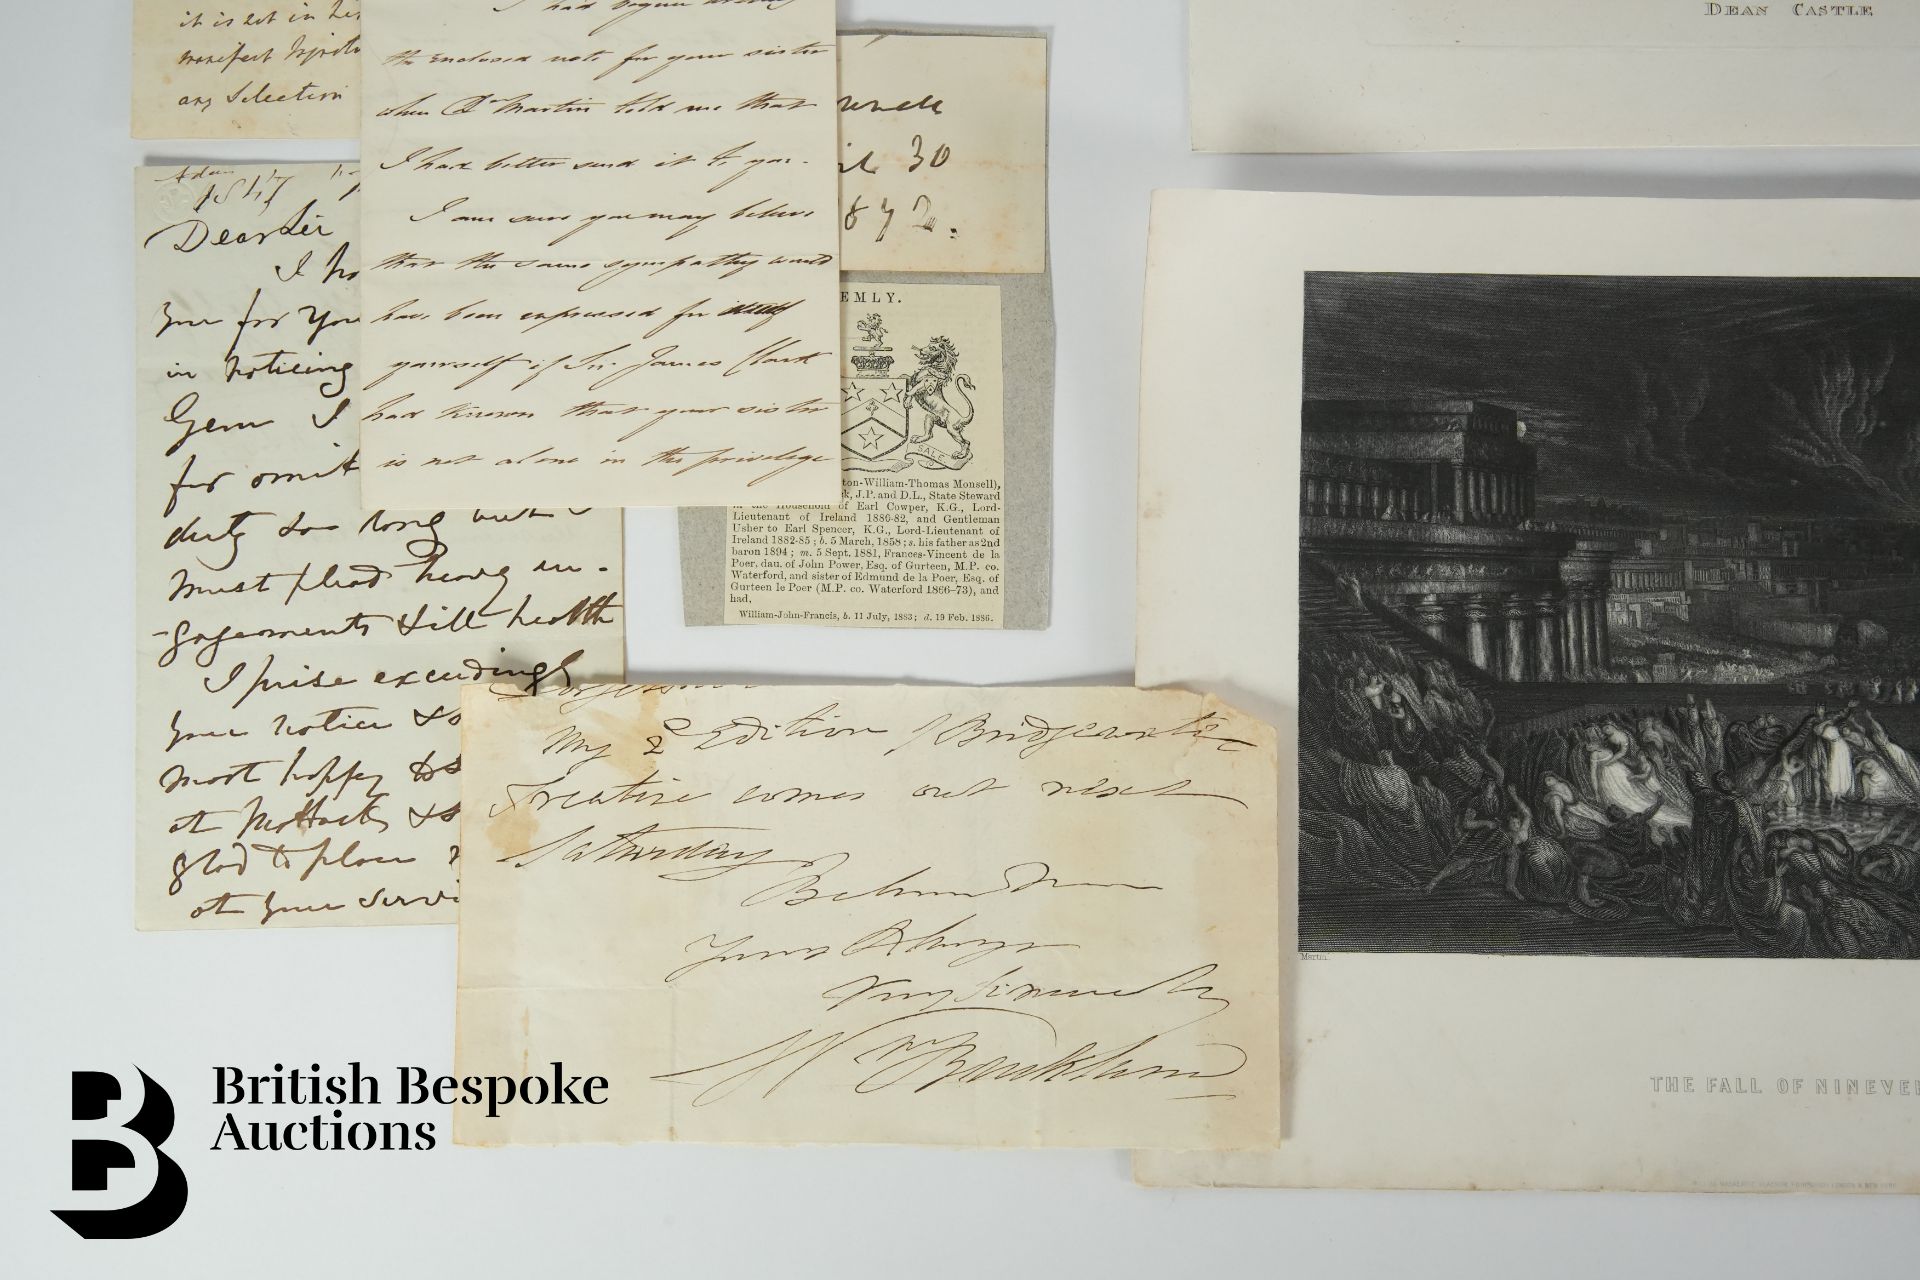 it is not in his
manifest
any Selection
I had begun
the enclosed note for your sister
when Dr Martin told me that
I had better send it to you.
I am sure you may believe
that the same sympathy would
have been expressed for
yourself if Sir James Clark
had known that your sister
is not alone in the privilege
30
872.
1847
Dear Sir
I
your for your
in noticing
Gem I
for omit
duty too long but I
must plead heavy en-
-gagements & ill health
I prise exceedingly
your notice & so
most happy to
at
glad to place
at your servi
EMLY.
SALE
ton-William-Thomas Monsell),
k, J.P. and D.L., State Steward
in the Household of Earl Cowper, K.G., Lord-
Lieutenant of Ireland 1880-82, and Gentleman
Usher to Earl Spencer, K.G., Lord-Lieutenant of
Ireland 1882-85; b. 5 March, 1858; s. his father as 2nd
baron 1894; m. 5 Sept. 1881, Frances-Vincent de la
Poer, dau. of John Power, Esq. of Gurteen, M.P. co.
Waterford, and sister of Edmund de la Poer, Esq. of
Gurteen le Poer (M.P. co. Waterford 1866-73), and
had,
William-John-Francis, b. 11 July, 1883; d. 19 Feb. 1886.
My 2d Edition of Bridgewater
Treatise comes out next
Saturday
Believe me
Yours Always
Very Sincerely
Wm Buckland
DEAN CASTLE
Martin.
THE FALL OF NINEVEH
British Bespoke
Auctions